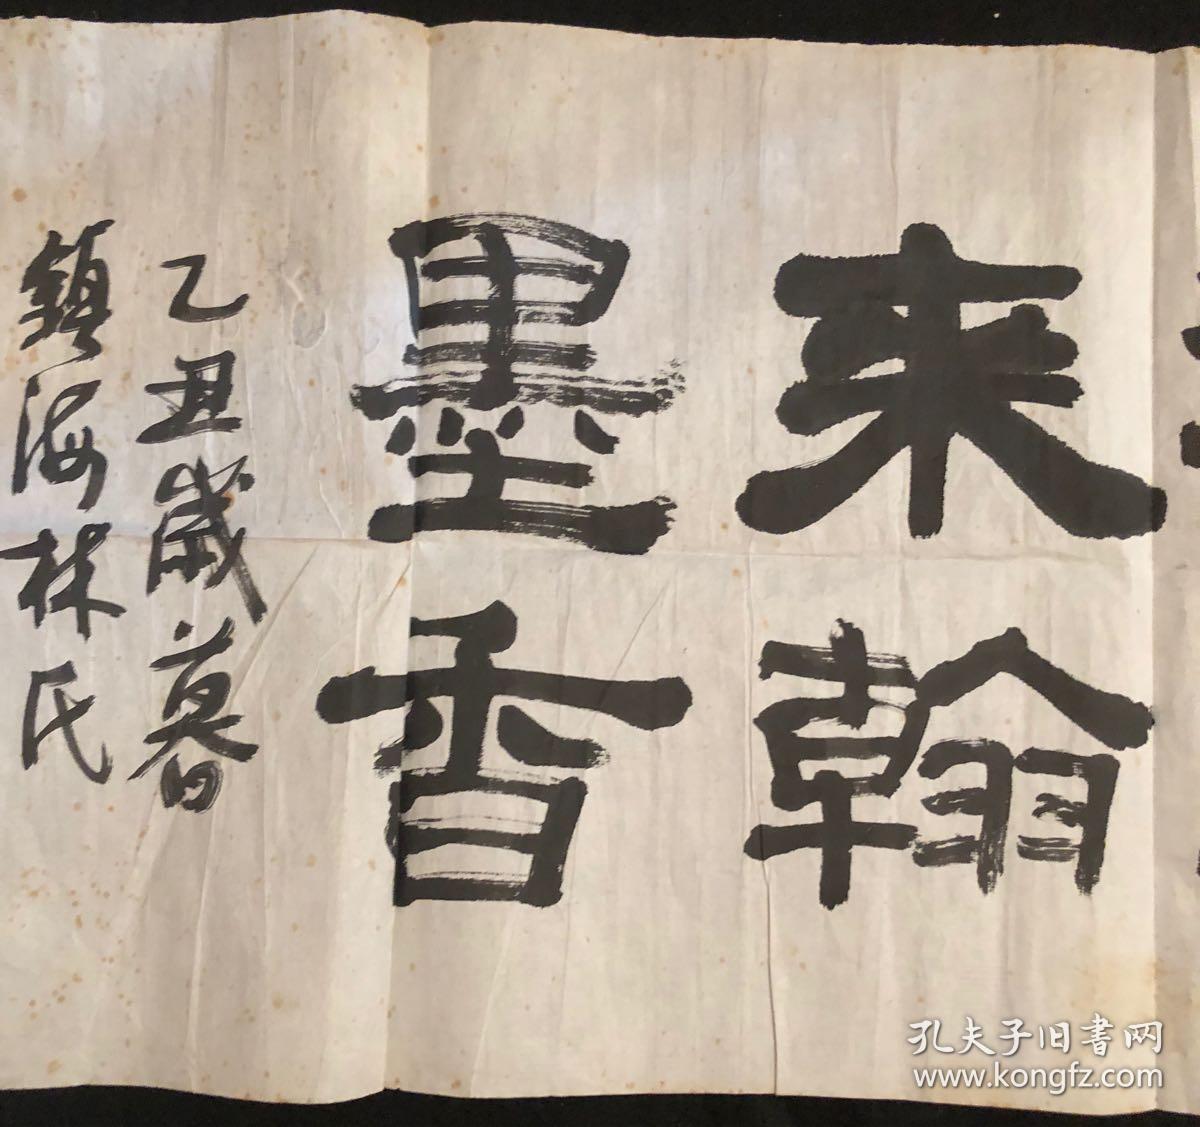 来翰
墨香
乙丑歲暮
鎮海林氏
孔夫子旧书网
www.kongfz.com